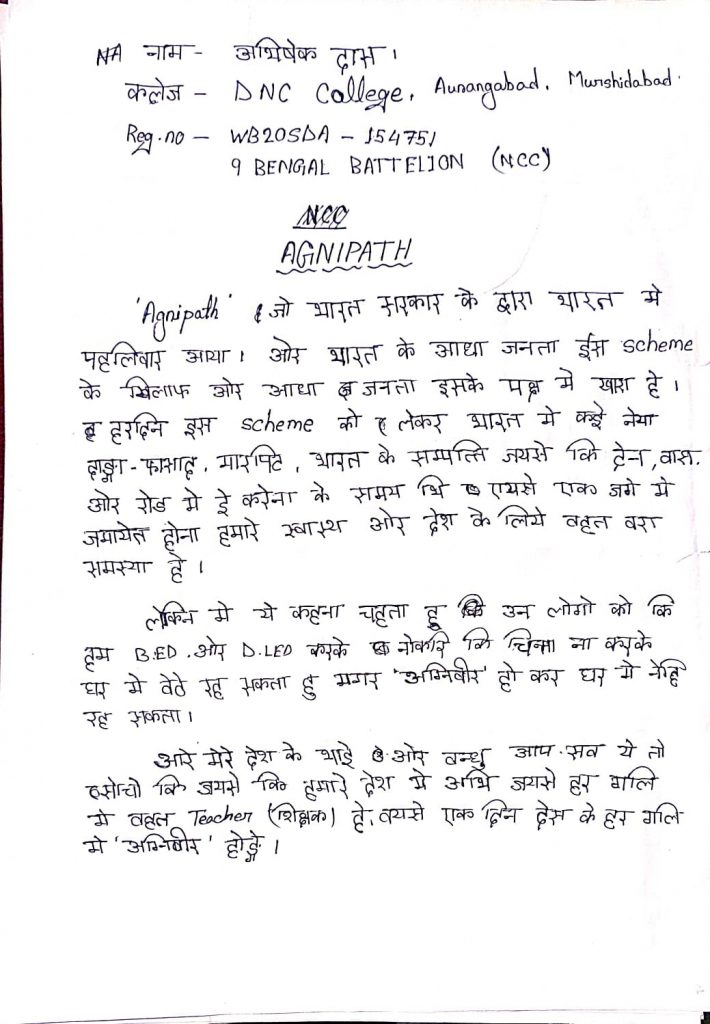 NA नाम - अभिषेक दास ।
कलेज - DNC College, Aurangabad, Murshidabad.
Reg.no - WB20SDA - 154751
9 BENGAL BATTELION (NCC)
NCC
AGNIPATH
'Agnipath' जो भारत सरकार के द्वारा भारत मे
पहलिबार आया । ओर भारत के आधा जनता ईस scheme
के खिलाफ ओर आधा जनता इसके पक्ष मे खारा हे ।
हरदिन इस scheme को लेकर भारत मे कई नया
दाङ्गा - फासाद, मारपिट, भारत के सम्पत्ति जयसे कि ट्रेन, वास.
ओर रोड मे ई करोना के समय भि एयसे एक जगे मे
जमायेत होना हमारे स्वास्थ ओर देश के लिये वहत वरा
समस्या हे ।
लेकिन मे ये कहना चहता हू कि उन लोगो को कि
हम B.ED. ओर D.LED करके नोकरि कि चिन्ता ना करके
घर मे वेठे रह सकता हु मगर 'अग्निबीर' हो कर घर मे नेहि
रह सकता ।
आरे मेरे देश के भाई ओर वन्धु आप सव ये तो
सोचो कि जयसे कि हमारे देश मे अभि जयसे हर गलि
मे वहत Teacher (शिक्षक) हे, वयसे एक दिन देस के हर गलि
मे 'अग्निबीर' होङ्गे ।